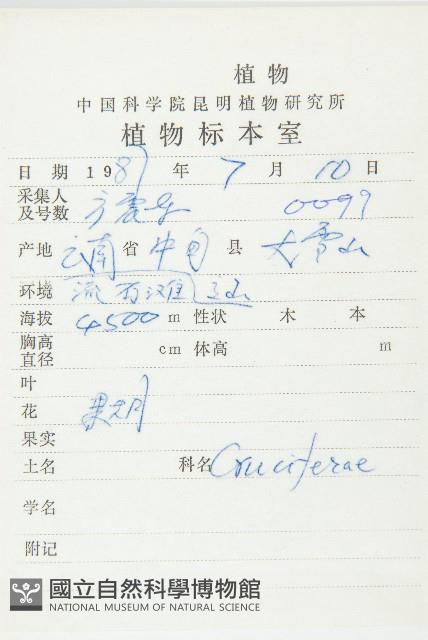 植物
中国科学院昆明植物研究所
植物标本室
日期 1981年7月10日
采集人
及号数 方震东 0099
产地 云南省中甸县 大雪山
环境 流石滩
海拔 4500 m 性状 木 本
胸高
直径 cm 体高 m
叶
花
果实 果期
土名 科名 Cruciferae
学名
附记
國立自然科學博物館
NATIONAL MUSEUM OF NATURAL SCIENCE